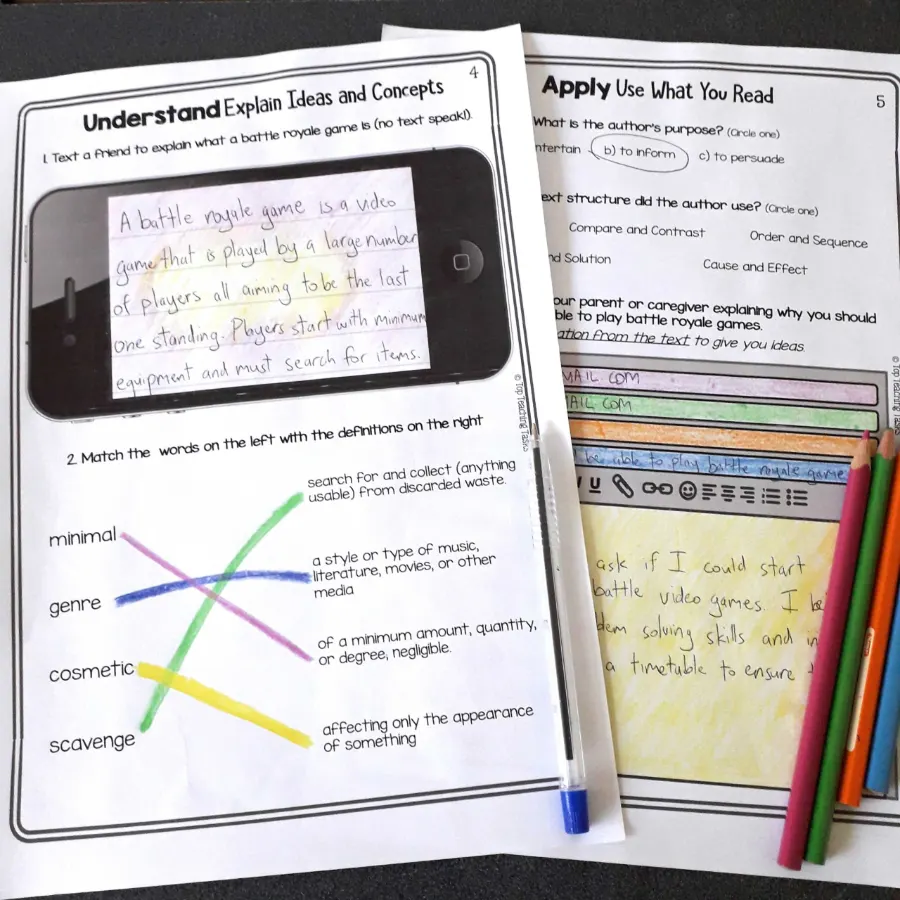 4
Understand Explain Ideas and Concepts
1. Text a friend to explain what a battle royale game is (no text speak!).
A battle royale game is a video
game that is played by a large number
of players all aiming to be the last
one standing. Players start with minimum
equipment and must search for items.
© Top Teaching Tasks
2. Match the words on the left with the definitions on the right
minimal
genre
cosmetic
scavenge
search for and collect (anything
usable) from discarded waste.
a style or type of music,
literature, movies, or other
media
of a minimum amount, quantity,
or degree, negligible.
affecting only the appearance
of something
5
Apply Use What You Read
What is the author's purpose? (Circle one)
ntertain b) to inform c) to persuade
ext structure did the author use? (Circle one)
Compare and Contrast Order and Sequence
nd Solution Cause and Effect
our parent or caregiver explaining why you should
ble to play battle royale games.
ation from the text to give you ideas
MAIL COM
AIL COM
be able to play battle royale game
U
ask if I could start
battle video games. I be
dem solving skills and in
a timetable to ensure
© Top Teaching Tasks